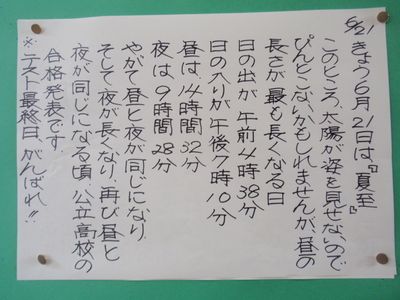 6/21
きょう6月21日は『夏至』
このところ、太陽が姿を見せないので
ぴんとこないかもしれませんが、昼の
長さが最も長くなる日
日の出が午前4時38分
日の入りが午後7時10分
昼は、14時間32分
夜は9時間28分
やがて昼と夜が同じになり、
そして夜が長くなり、再び昼と
夜が同じになる頃、公立高校の
合格発表です。
※テスト最終日、がんばれ!!